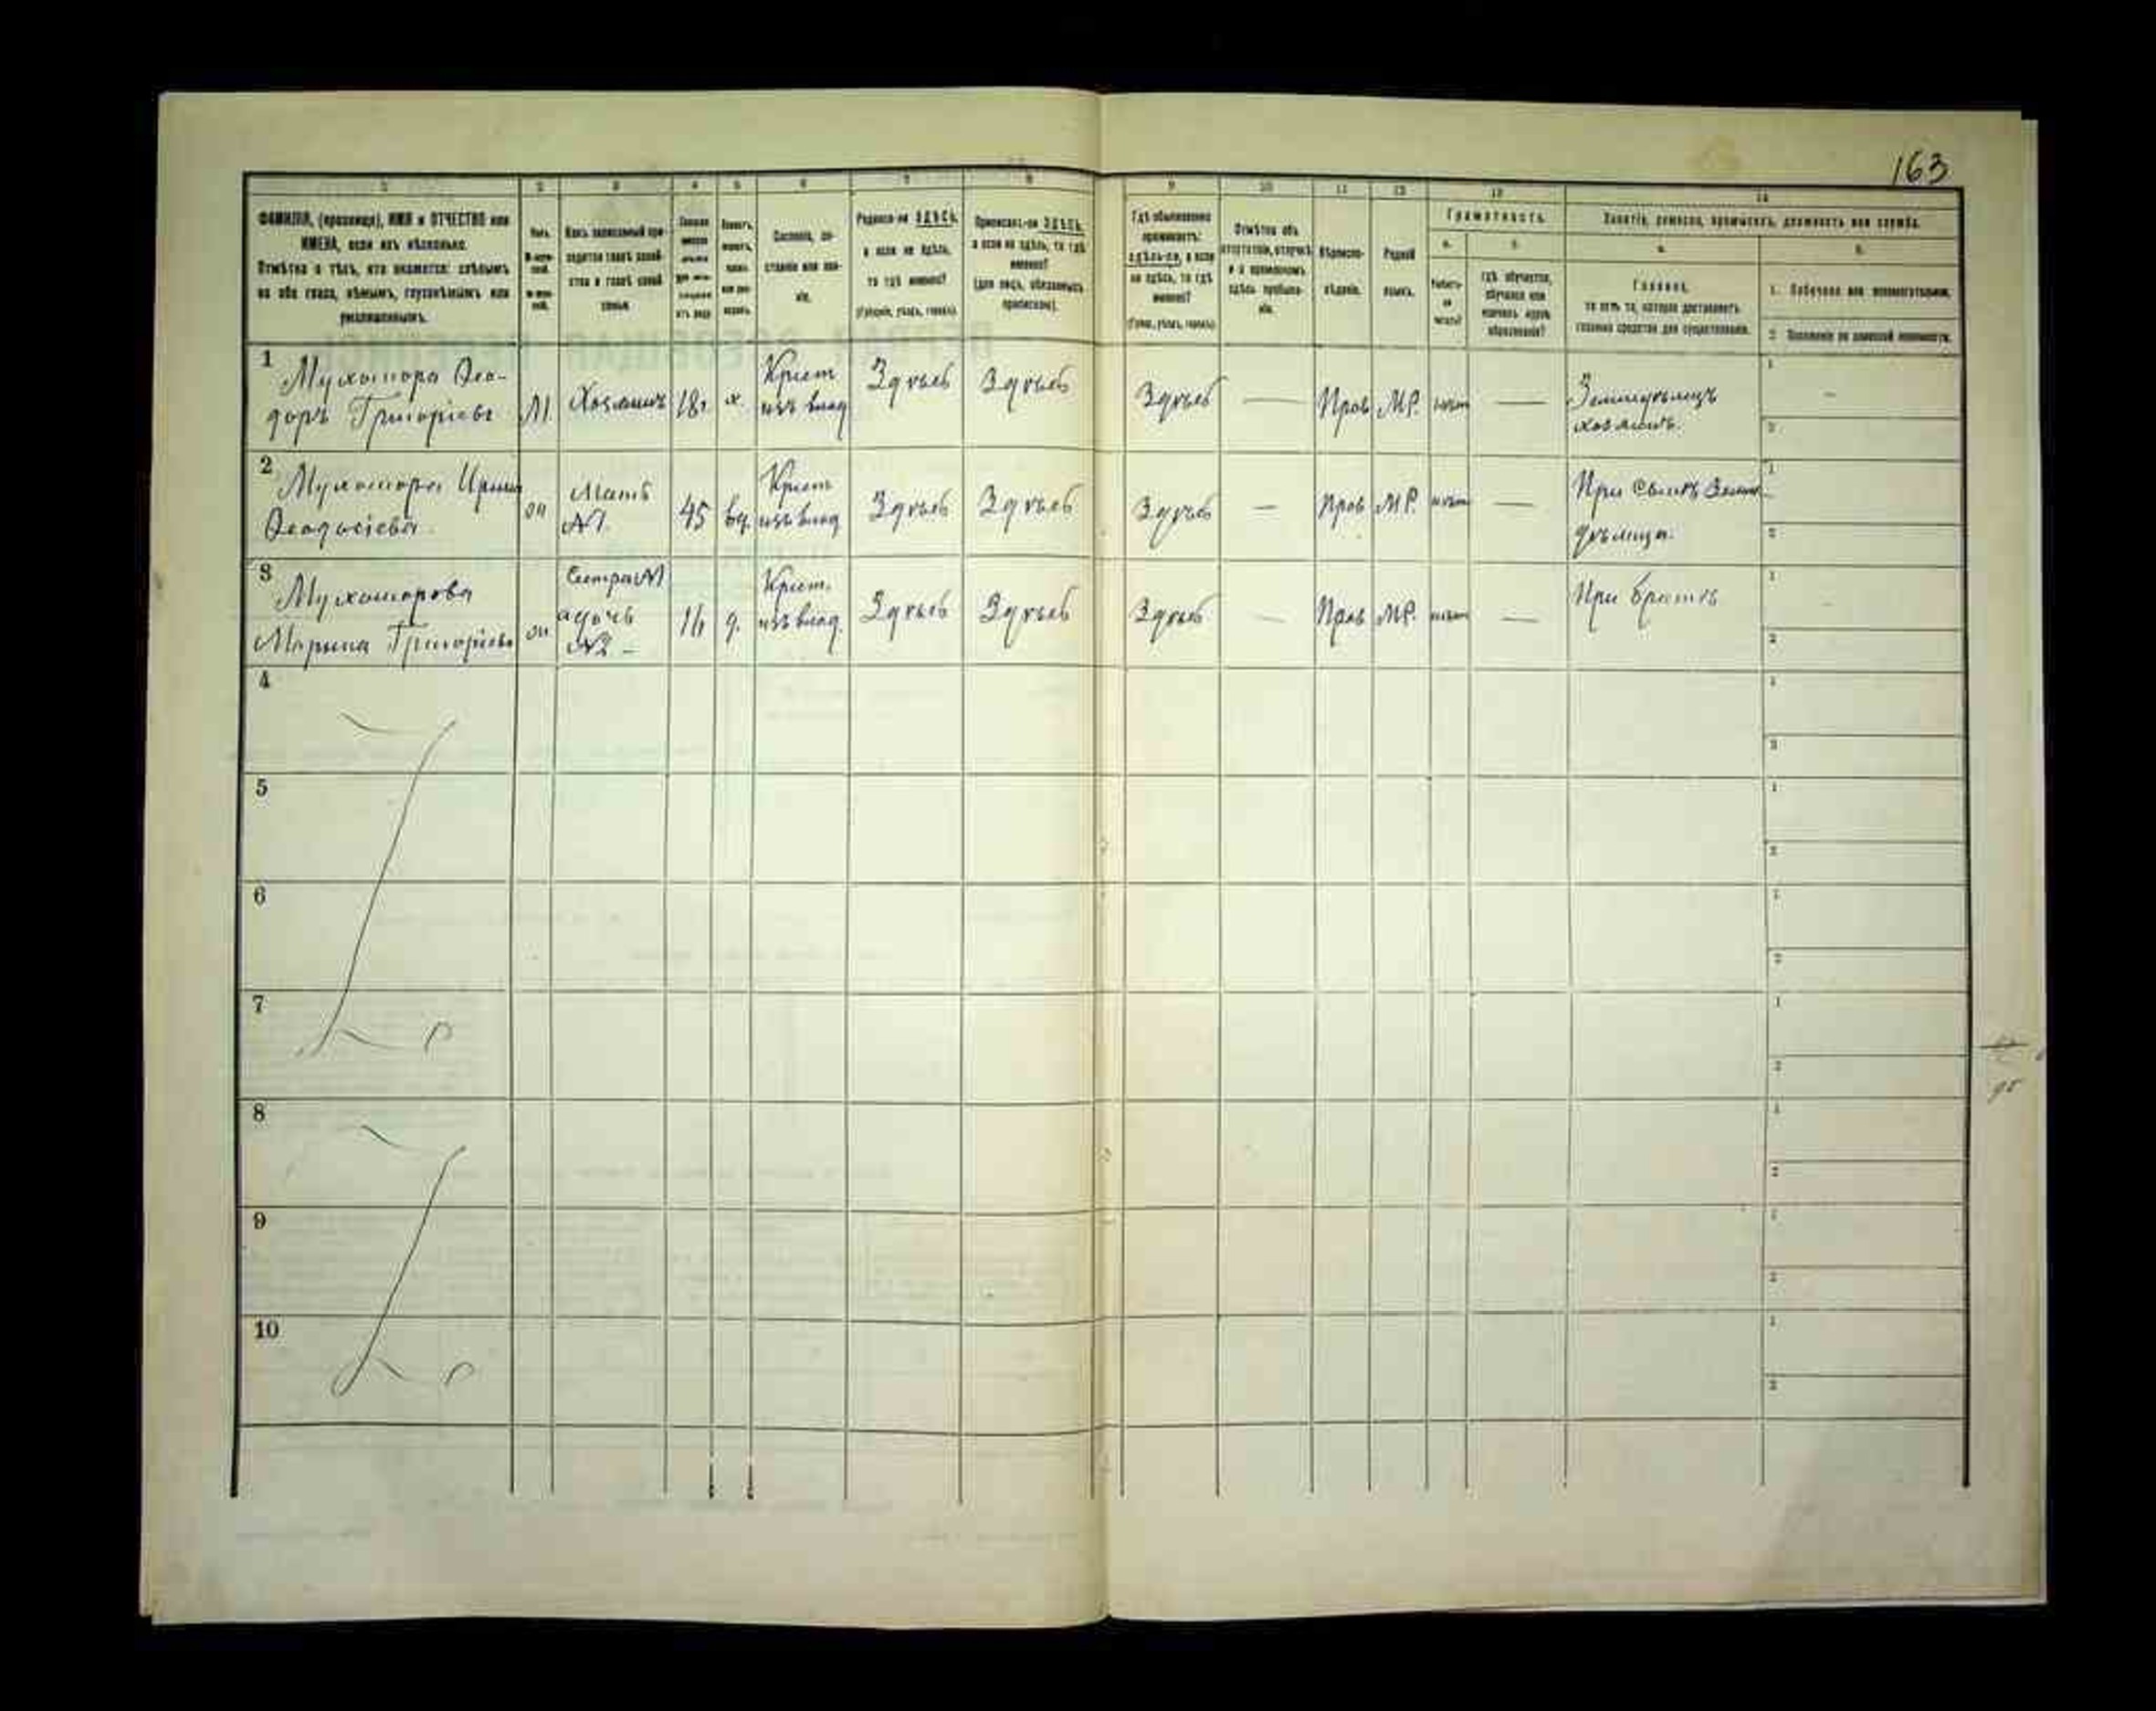 163
1 2 3 4 5 6 7 8 9 10 11 12 13 14
ФАМИЛІЯ, (прозвище), ИМЯ и ОТЧЕСТВО или
ИМЕНА, если ихъ нѣсколько.
Отмѣтка о тѣхъ, кто окажется: слѣпымъ
на оба глаза, нѣмымъ, глухонѣмымъ или
умалишеннымъ.
Сословіе, со-
стояніе или зва-
ніе.
Родился-ли ЗДѢСЬ,
а если не здѣсь,
то гдѣ именно?
(Губернія, уѣздъ, городъ).
Приписанъ-ли ЗДѢСЬ,
а если не здѣсь, то гдѣ
именно?
(для лицъ, обязанныхъ
припискою).
Гдѣ обыкновенно
проживаетъ:
здѣсь-ли, а если
не здѣсь, то гдѣ
именно?
(Губер., уѣздъ, городъ).
Отмѣтка объ
отсутствіи, отлучкѣ
и о временномъ
здѣсь пребыва-
ніи.
Вѣроиспо-
вѣданіе.
Родной
языкъ.
Грамотность.
а. б.
Умѣетъ-
ли
читать?
гдѣ обучается,
обучался или
кончилъ курсъ
образованія?
Занятіе, ремесло, промыселъ, должность или служба.
а. б.
Главное,
то есть то, которое доставляетъ
главныя средства для существованія.
1. Побочное или вспомогательное.
2. Положеніе по воинской повинности.
1 Мухомора Ѳео-
доръ Григоріевъ
М Хозяинъ 18 х. Крест изъ влад Здѣсь Здѣсь Здѣсь — Прав МР. нѣтъ —
Земледѣлецъ
хозяинъ.
2 Мухомора Ирина
Ѳеодосіева
Мать
№1.
45 вд. Крест изъ влад Здѣсь Здѣсь Здѣсь — Прав МР. нѣтъ —
При сынѣ Земле-
дѣльца.
3 Мухоморова
Марина Григоріева
Сестра №1
а дочь
№2 –
16 д. Крест. изъ влад. Здѣсь Здѣсь Здѣсь — Прав МР. нѣтъ —
При братѣ
4
5
6
7
8
9
10